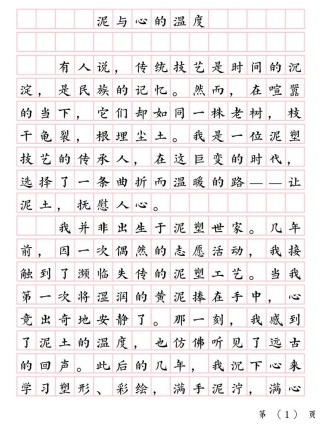 泥与心的温度
有人说，传统技艺是时间的沉
淀，是民族的记忆。然而，在喧嚣
的当下，它们却如同一株老树，枝
干龟裂，根埋尘土。我是一位泥塑
技艺的传承人，在这巨变的时代，
选择了一条曲折而温暖的路——让
泥土，抚慰人心。
我并非出生于泥塑世家。几年
前，因一次偶然的志愿活动，我接
触到了濒临失传的泥塑工艺。当我
第一次将湿润的黄泥捧在手中，心
竟出奇地安静了。那一刻，我感到
了泥土的温度，也仿佛听见了远古
的回声。此后的几年，我沉下心来
学习塑形、彩绘，满手泥泞，满心
第 （1） 页